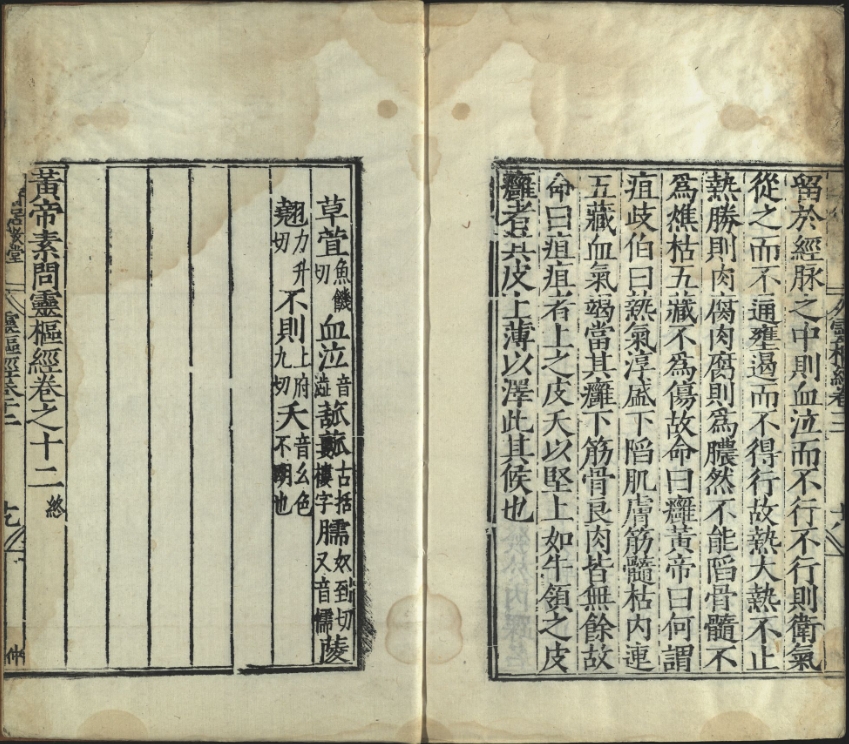 留於經脉之中則血泣而不行不行則衛氣
從之而不通壅遏而不得行故熱大熱不止
熱勝則肉腐肉腐則爲膿然不能陷骨髓不
爲燋枯五藏不爲傷故命曰癰黃帝曰何謂
疽歧伯曰熱氣淳盛下陷肌膚筋髓枯内連
五藏血氣竭當其癰下筋骨良肉皆無餘故
命曰疽疽者上之皮夭以堅上如牛領之皮
癰者其皮上薄以澤此其候也
草萓魚饑切血泣音澁㼋㼋古括樓字臑奴到切又音儒䔖
翹力升切不則上府九切夭音幺色不明也
黃帝素問靈樞經卷之十二終
靈樞經卷十二
十九
仲